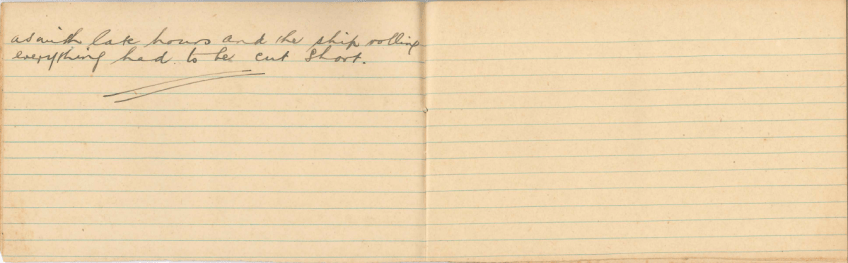 as with late hours and the ship rolling
everything had to be cut short.